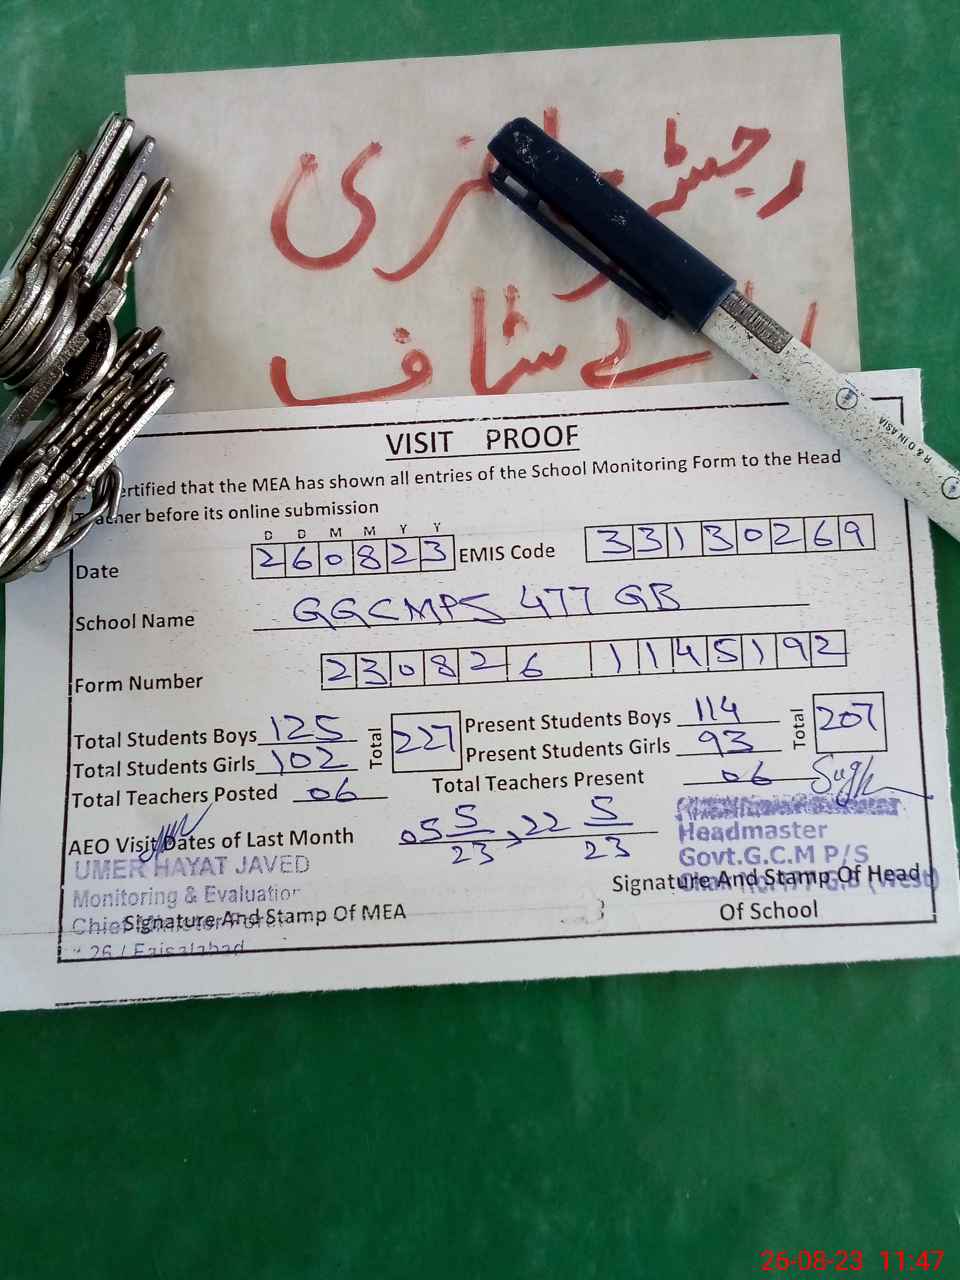 رجسٹر حاضری
برائے سٹاف
R & D IN ASIA
VISIT PROOF
Certified that the MEA has shown all entries of the School Monitoring Form to the Head
Teacher before its online submission
D D M M Y Y
Date 260823 EMIS Code 33130269
School Name GGCMPS 477 GB
Form Number 230826 1145192
Total Students Boys 125 Total 227 Present Students Boys 114 Total 207
Total Students Girls 102 Present Students Girls 93
Total Teachers Posted 06 Total Teachers Present 06
AEO Visit Dates of Last Month 05 5/23, 22 5/23
UMER HAYAT JAVED
Monitoring & Evaluation
Chief
26 / Faisalabad
Signature And Stamp Of MEA
Headmaster
Govt.G.C.M P/S
(West)
Signature And Stamp Of Head
Of School
26-08-23 11:47